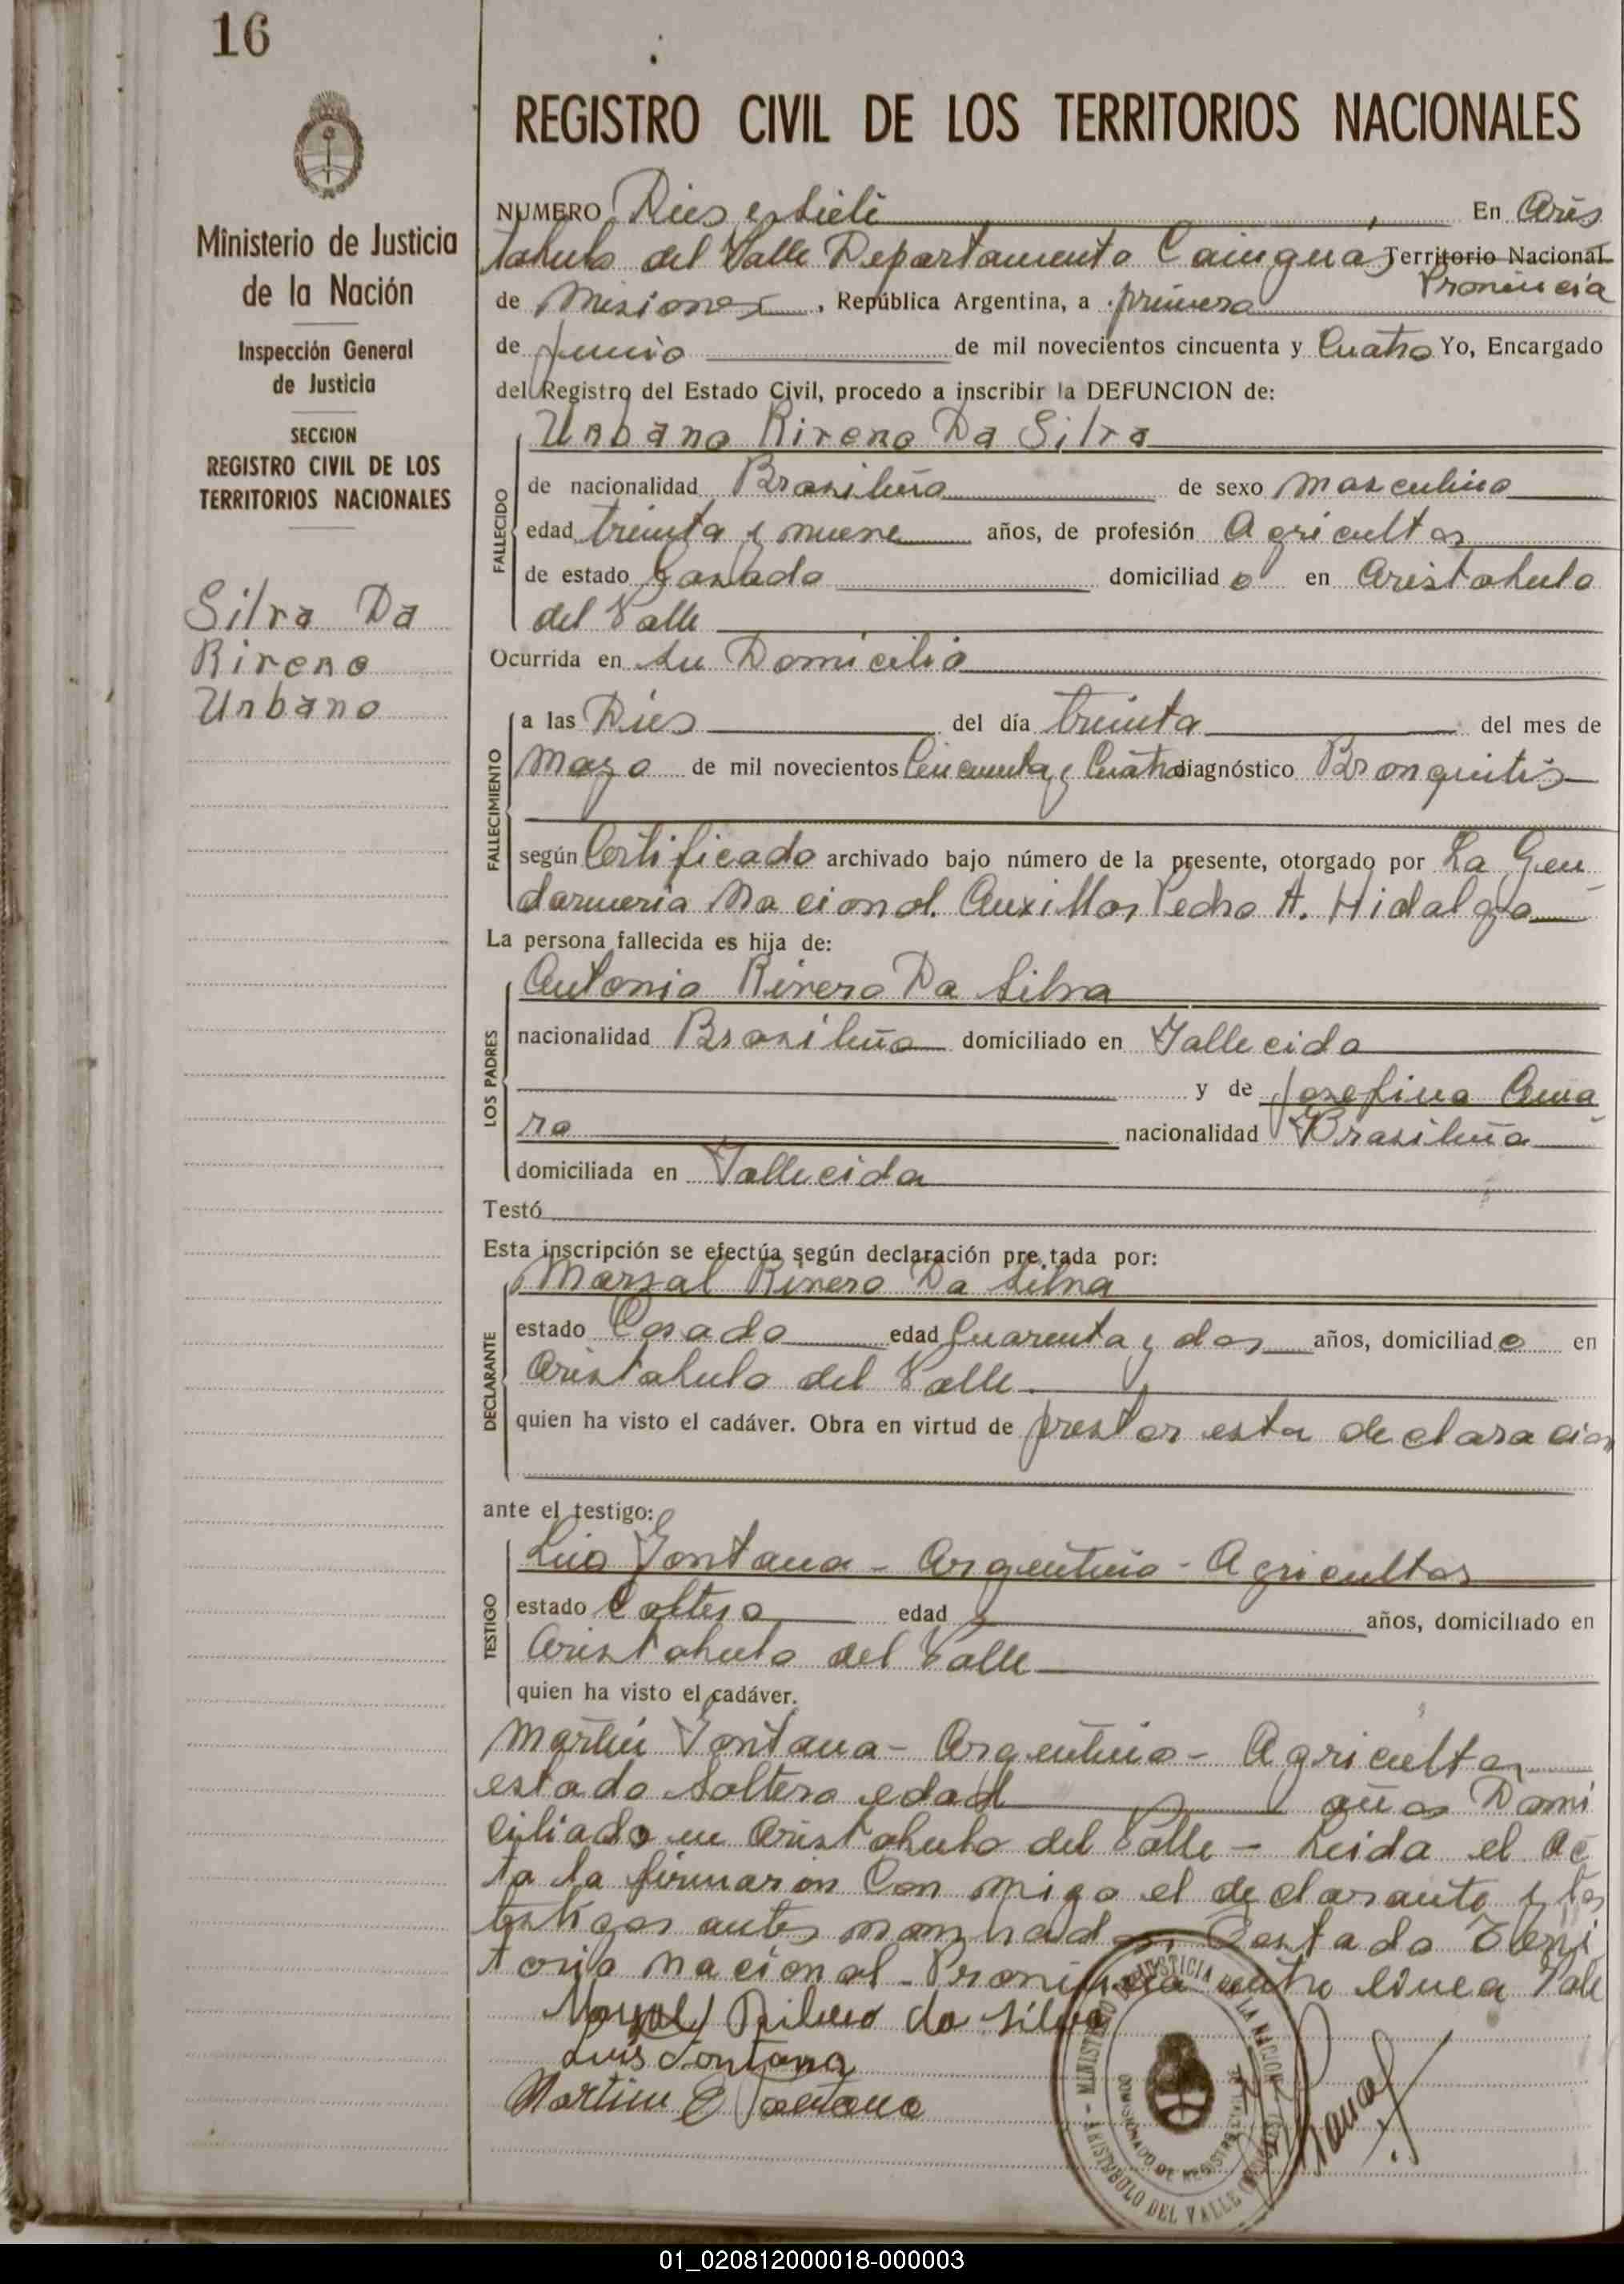 16
Ministerio de Justicia
de la Nación
Inspección General
de Justicia
SECCION
REGISTRO CIVIL DE LOS
TERRITORIOS NACIONALES
Silva Da
Rivero
Urbano
REGISTRO CIVIL DE LOS TERRITORIOS NACIONALES
NUMERO Dies y siete En Aris
tobulo del Valle Departamento Cainguas Territorio Nacional
Provincia
de Misiones, República Argentina, a primero
de Junio de mil novecientos cincuenta y Cuatro Yo, Encargado
del Registro del Estado Civil, procedo a inscribir la DEFUNCION de:
Urbano Rivero Da Silva
FALLECIDO
de nacionalidad Brasileña de sexo Masculino
edad treinta y nueve años, de profesión Agricultor
de estado Casado domiciliado en Aristobulo
del Valle
Ocurrida en su Domicilio
FALLECIMIENTO
a las Dies del día treinta del mes de
Mayo de mil novecientos Cincuenta y Cuatro diagnóstico Bronquitis
según Certificado archivado bajo número de la presente, otorgado por La Gen
darmeria Nacional. Pedro A. Hidalgo
La persona fallecida es hija de:
LOS PADRES
Antonio Rivero Da Silva
nacionalidad Brasileña domiciliado en Fallecido
y de Josefina Ama
ro nacionalidad Brasileña
domiciliada en Fallecida
Testó
Esta inscripción se efectúa según declaración pre tada por:
DECLARANTE
Marsal Rivero Da Silva
estado Casado edad Cuarenta y dos años, domiciliado en
Aristobulo del Valle
quien ha visto el cadáver. Obra en virtud de prestar esta declaracion
ante el testigo:
TESTIGO
Luis Fontana - Argentino - Agricultor
estado Soltero edad años, domiciliado en
Aristobulo del Valle
quien ha visto el cadáver.
Martin Fontana - Argentino - Agricultor
estado Soltero edad años Domi
ciliado en Aristobulo del Valle - Leida el Ac
ta la firmaron Con migo el declarante y los
testigos antes nombrados. Testado Terri
torio Nacional - Provincia entre linea Vale
da Silva
Luis Fontana
Martin Fontana
MINISTERIO DE JUSTICIA DE LA NACION
ARISTOBULO DEL VALLE
01_020812000018-000003